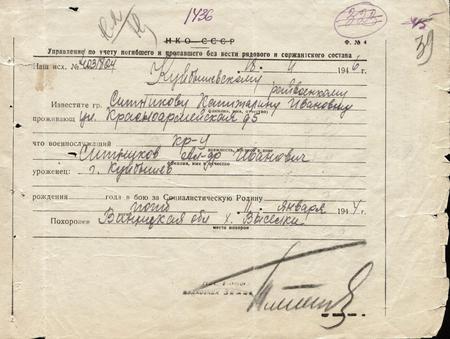 1436
НКО СССР
Управление по учету погибшего и пропавшего без вести рядового и сержантского состава
Ф. № 4
39
Наш исх. № 403/804 18. 4 194 6 г.
Куйбышевскому
райвоенкому
Известите гр. Ситникову Ивановну
фамилия, имя, отчество
проживающ ул. Красноармейская 95
что военнослужащий кр-ц
должность, звание и имя
Ситников Ал-др Иванович
фамилия, имя и отчество
уроженец: г. Куйбышев
рождения года в бою за Социалистическую Родину
погиб 11. января 194 4 г.
Похоронен обл х. Выселки
место похорон